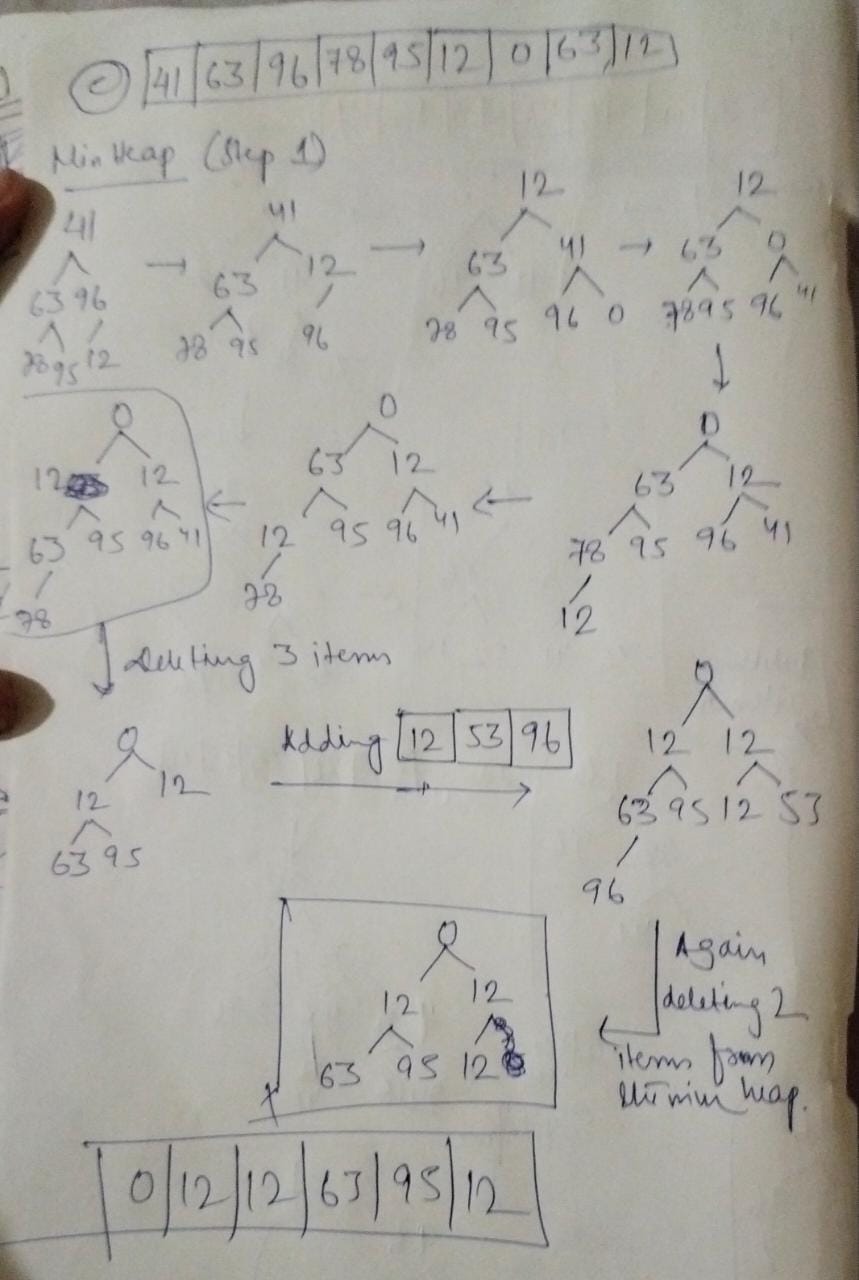 C 41 63 96 78 95 12 0 63 12
Min Heap (Step 1)
41
63 96
78 95 12
41
63 12
78 95 96
12
63 41
78 95 96 0
12
63 0
78 95 96 41
0
63 12
78 95 96 41
12
0
63 12
12 95 96 41
78
0
12 12
63 95 96 41
78
Deleting 3 items
0
12 12
63 95
Adding 12 53 96
0
12 12
63 95 12 53
96
Again
deleting 2
items from
heap.
0
12 12
63 95 12
0 12 12 63 95 12